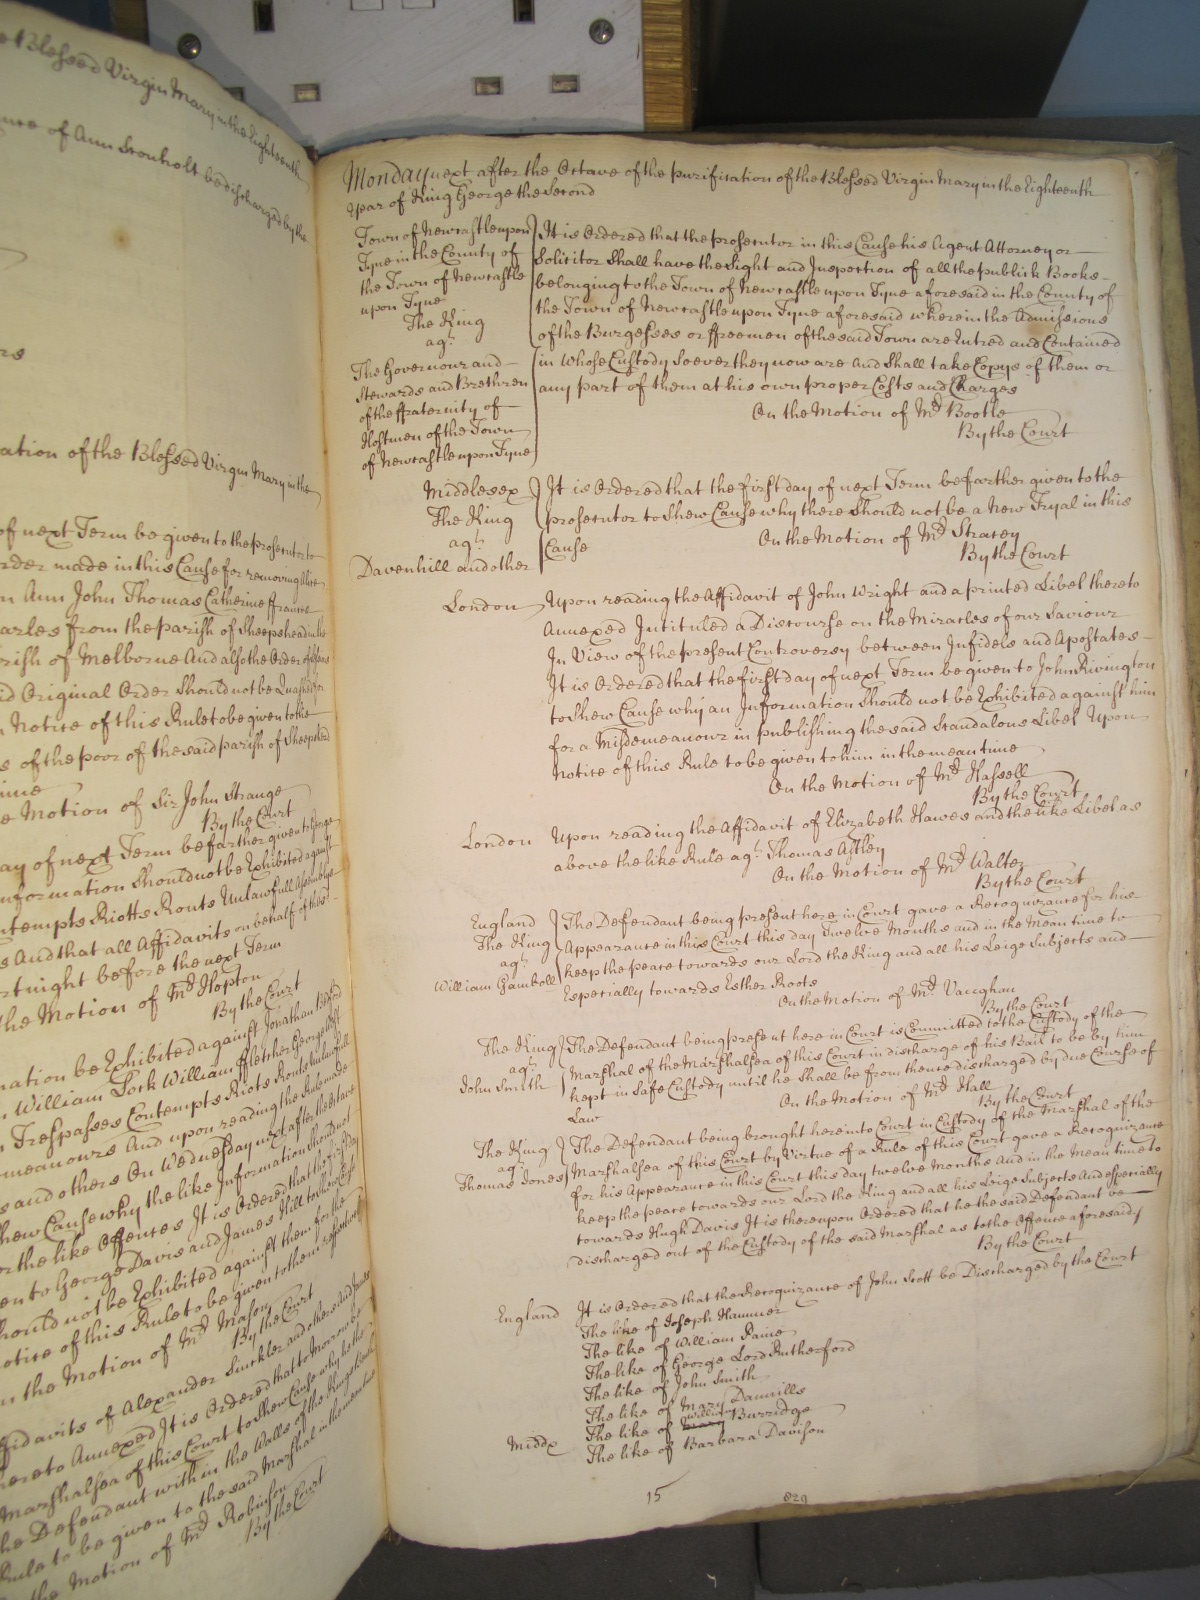 e Blessed Virgin Mary in the Eighteenth
nce of Ann Stonholt be discharged by the
ors
ation of the Blessed Virgin Mary in the
of next Term be given to the prosecutor to
rder made in this Cause for removing
n Ann John Thomas Catherine ffrances
arles from the parish of Sheepshead in the
rish of Melborne And also the Order of
id Original Order Should not be Quashed
n Notice of this Rule to be given to the
s of the poor of the said parish of Sheepshead
ime
e Motion of Sir John Strange
By the Court
ay of next Term be farther given to George
nformation Should not be Exhibited against
ntempts Riotts Routs Unlawfull Assemblys
s And that all Affidavits on behalf of the
rtnight before the next Term
he Motion of Mr Hopton
By the Court
mation be Exhibited against Jonathan
n William Lock William ffletcher George
n Trespasses Contempts Riots Routs Unlawfull
meanours And upon reading the Rule made
s and others On Wednesday next after the Octave
hew Cause why the like Information Should not
or the like Offences It is Ordered that the first Day
en to George Davis and James Hill to shew Cause
hould not be Exhibited against them for the
otice of this Rule to be given to them respectively
n the Motion of Mr Mason
By the Court
ffidavits of Alexander Sinckler and others And
hereto Annexed It is Ordered that to Morrow be
Marshalsea of this Court to Shew Cause why he the
he Defendant within the Walls of the Kings Bench
Rule to be given to the said Marshal in the mean time
the Motion of Mr Robinson
By the Court
Monday next after the Octave of the purification of the Blessed Virgin Mary in the Eighteenth
Year of King George the Second
Town of Newcastle upon
Tyne in the County of
the Town of Newcastle
upon Tyne
The King
agt
The Governour and
Stewards and Brethren
of the ffraternity of
Hostmen of the Town
of Newcastle upon Tyne
It is Ordered that the prosecutor in this Cause his Agent Attorney or
Solicitor Shall have the Sight and Inspection of all the publick Books
belonging to the Town of Newcastle upon Tyne aforesaid in the County of
the Town of Newcastle upon Tyne aforesaid wherein the Admissions
of the Burgesses or ffreemen of the said Town are Entred and Contained
in Whose Custody Soever they now are And Shall take Copys of them or
any part of them at his own proper Costs and Charges
On the Motion of Mr Bootle
By the Court
Middlesex
The King
agt
Davenhill and other
It is Ordered that the first day of next Term be farther given to the
prosecutor to Shew Cause why there Should not be a New Tryal in this
Cause
On the Motion of Mr Stracey
By the Court
London
Upon reading the Affidavit of John Wright and a printed Libel thereto
Annexed Intituled a Discourse on the Miracles of our Saviour
In View of the present Controversy between Infidels and Apostates
It is Ordered that the first day of next Term be given to John Rivington
to Shew Cause why an Information Should not be Exhibited against him
for a Misdemeanour in publishing the said Scandalous Libel Upon
Notice of this Rule to be given to him in the mean time
On the Motion of Mr Hassell
By the Court
London
Upon reading the Affidavit of Elizabeth Hawes and the like Libel as
above the like Rule agt Thomas Astley
On the Motion of Mr Walter
By the Court
England
The King
agt
William Gambell
The Defendant being present here in Court gave a Recognizance for his
Appearance in this Court this day Twelve Months and in the Mean time to
keep the peace towards our Lord the King and all his Leige Subjects and
Especially towards Esther Roots
On the Motion of Mr Vaughan
By the Court
The King
agt
John Smith
The Defendant being present here in Court is Committed to the Custody of the
Marshal of the Marshalsea of this Court in discharge of his Bail to be by him
kept in Safe Custody until he Shall be from thence discharged by due Course of
Law
On the Motion of Mr Hall
By the Court
The King
agt
Thomas Jones
The Defendant being brought here into Court in Custody of the Marshal of the
Marshalsea of this Court by Virtue of a Rule of this Court gave a Recognizance
for his Appearance in this Court this day twelve Months And in the Mean time to
keep the peace towards our Lord the King and all his Leige Subjects And especially
towards Hugh Davis It is thereupon Ordered that he the said Defendant be
discharged out of the Custody of the said Marshal as to the Offence aforesaid
By the Court
England
It is Ordered that the Recognizance of John Scott be Discharged by the Court
The like of Joseph Hammer
The like of William Paine
The like of George Lord Rutherford
The like of John Smith
The like of Mary Daunills
The like of Mary William Burridge
Middx
The like of Barbara Davison
15
829